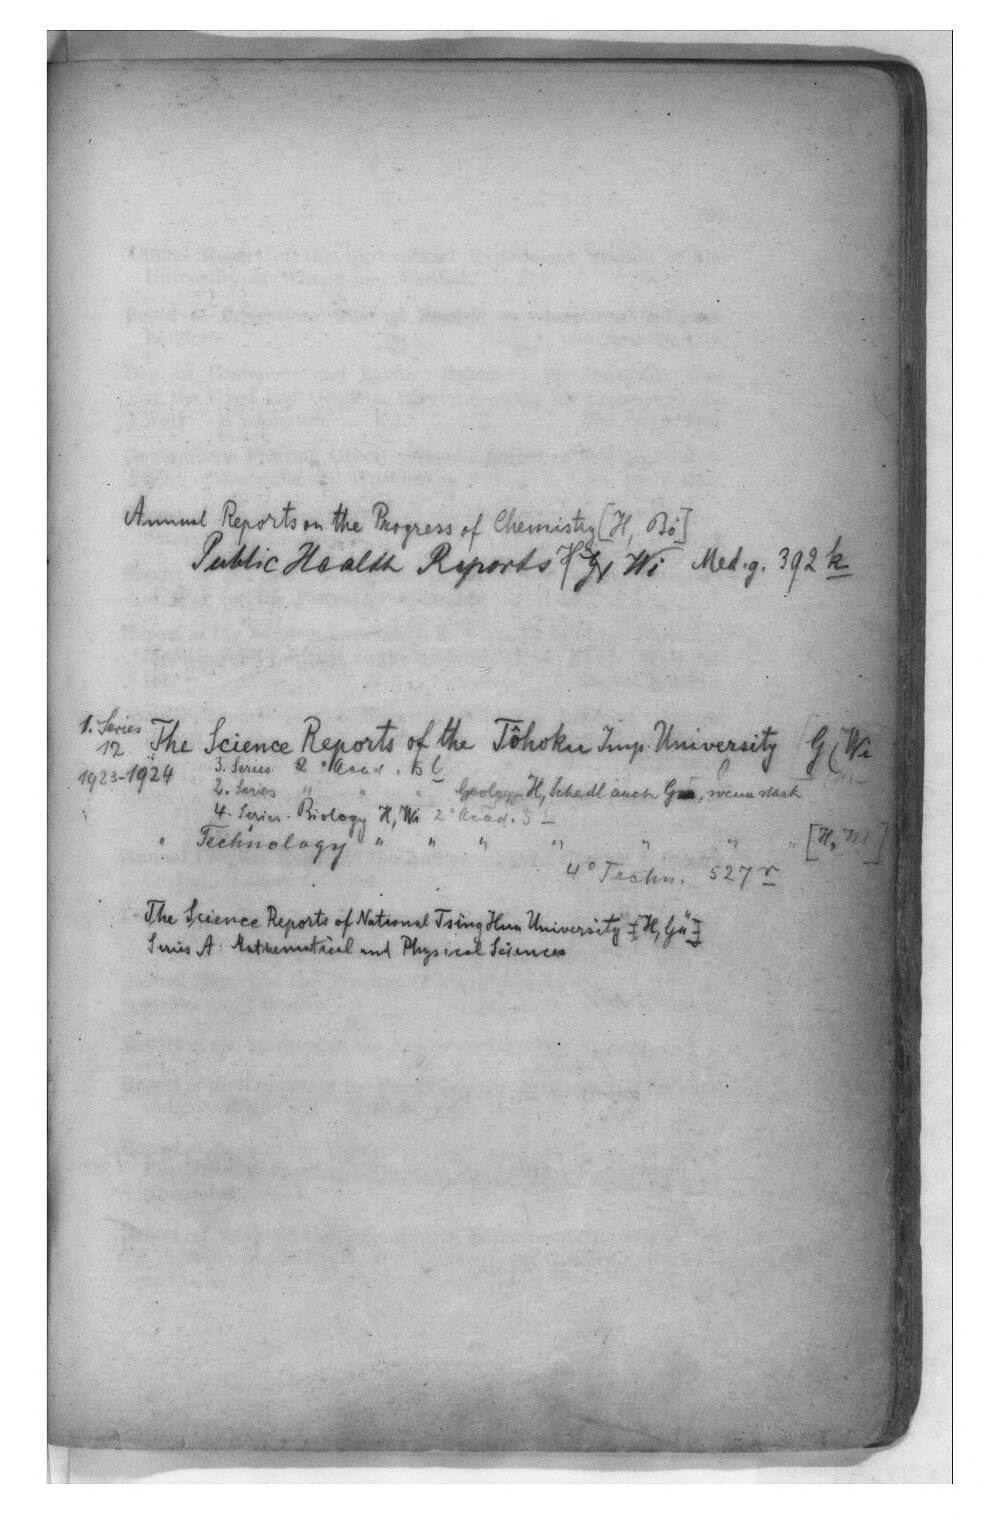 Annual Reports on the Progress of Chemistry [H, Bö]
Public Health Reports H Wi Med. g. 392 k
1. Series The Science Reports of the Tôhoku Imp. University G Wi
12
1923-1924 3. Series 2° Acad.
2. Series " " " Geology H, Schedl auch, wenn stark
4. Series. Biology H, Wi 2° Acad.
" Technology " " " " " " " [H, M]
4° Techn. 527 r
The Science Reports of National Tsing Hua University [H, Gü]
Series A: Mathematical and Physical Sciences